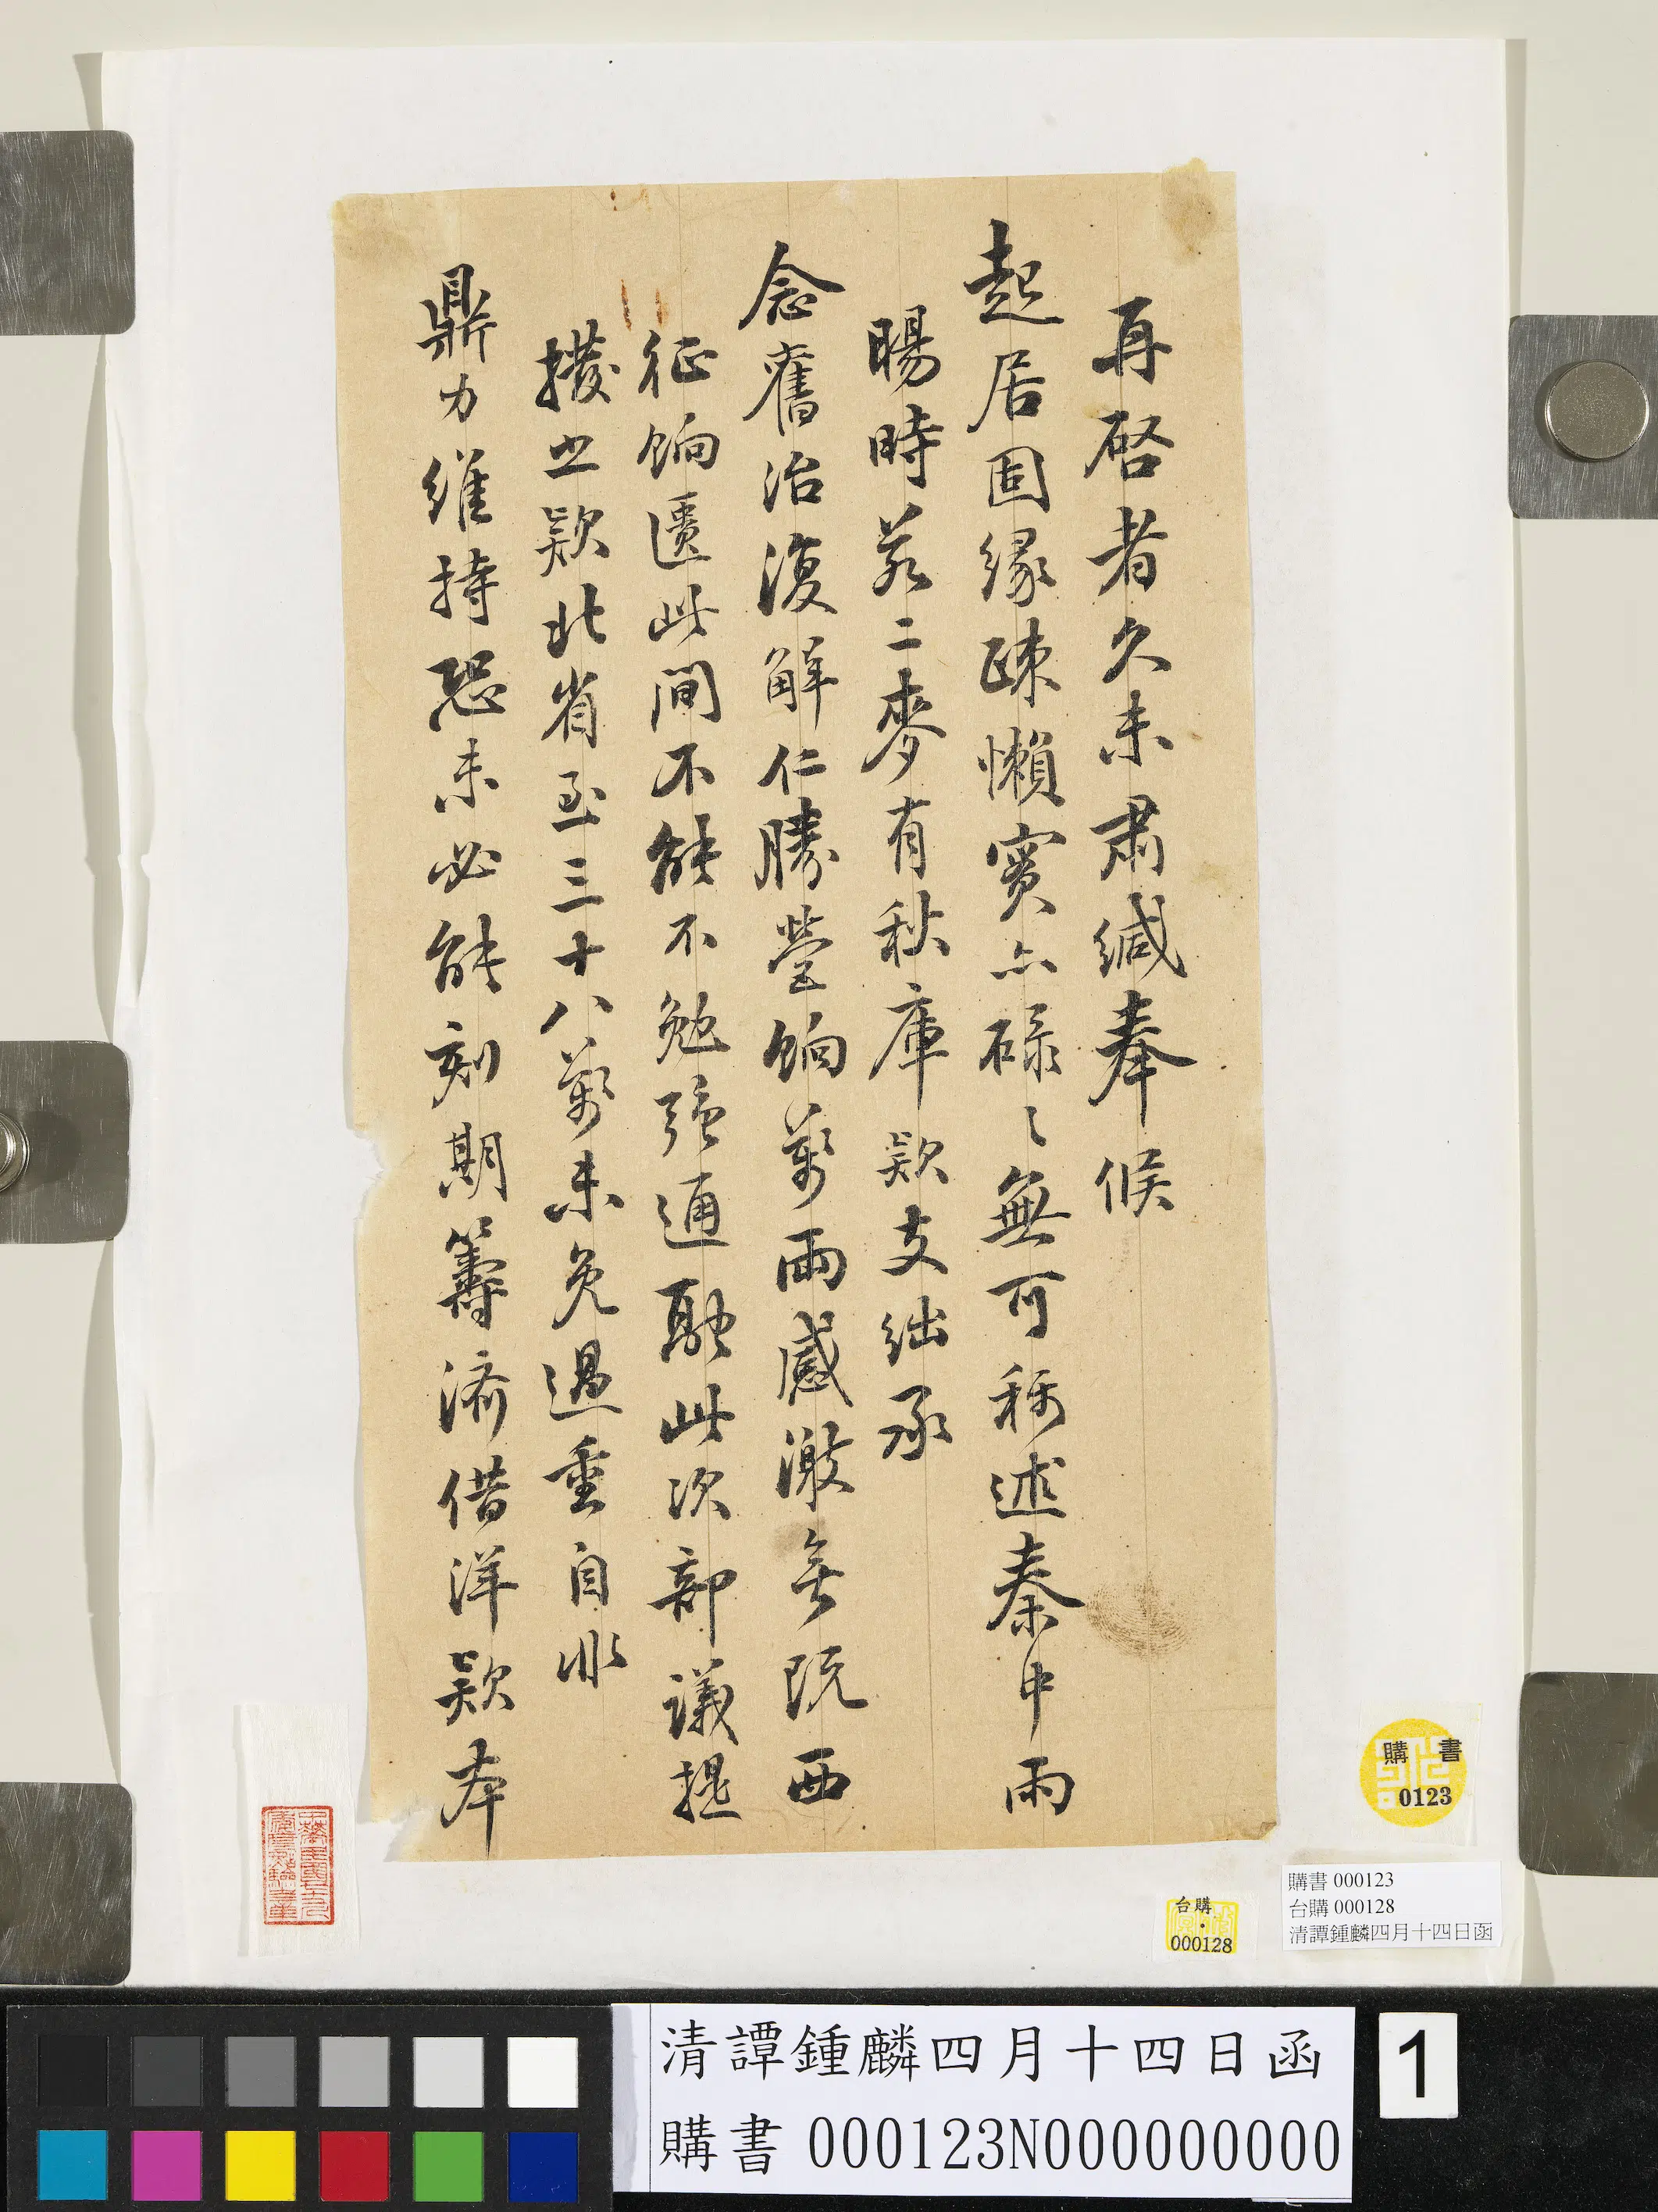 再啓者久未肅緘奉候
起居固緣疎懶實亦碌々無可稱述秦中雨
暘時若二麥有秋庫款支絀承
念舊治復解仁勝營餉萬兩感激無既西
征餉匱此間不能不勉強通融此次部議提
撥之款北省至三十八萬未免過重自非
鼎力維持恐未必能刻期籌濟借洋款本
購書
0123
台購
000128
購書 000123
台購 000128
清譚鍾麟四月十四日函
清譚鍾麟四月十四日函
購書 000123N000000000
1